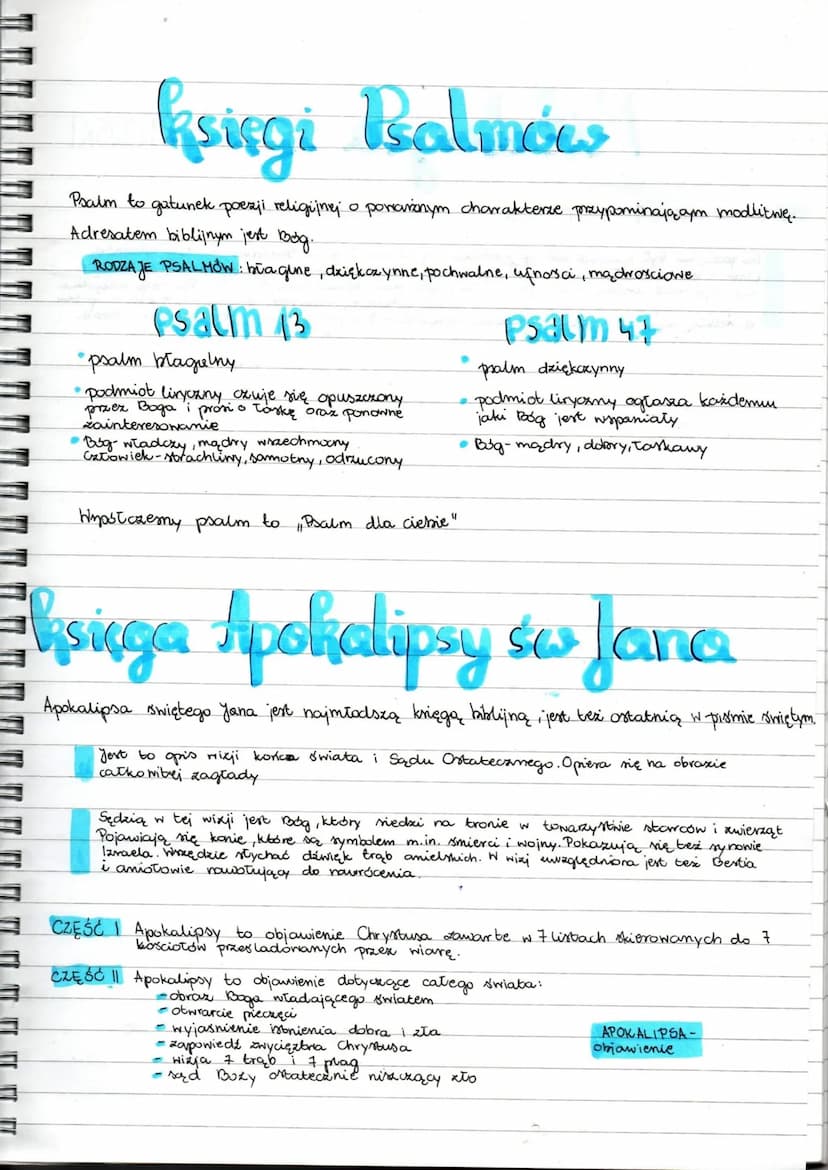 Księgi Psalmów
Psalm to gatunek poezji religijnej o poważnym charakterze przypominającym modlitwę.
Adresatem biblijnym jest Bóg.
RODZAJE PSALMÓW: błagalne, dziękczynne, pochwalne, ufności, mądrościowe
psalm 13
• psalm błagalny
• podmiot liryczny czuje się opuszczony
przez Boga i prosi o łaskę oraz ponowne
zainteresowanie
• Bóg - władczy, mądry wszechmocny
Człowiek - strachliwy, samotny, odrzucony
psalm 47
• psalm dziękczynny
• podmiot liryczny ogłasza każdemu
jaki Bóg jest wspaniały
• Bóg - mądry, dobry, łaskawy
Współczesny psalm to „Psalm dla ciebie"
Księga Apokalipsy św Jana
Apokalipsa świętego Jana jest najmłodszą księgą biblijną, jest też ostatnią w piśmie świętym.
Jest to opis wizji końca świata i Sądu Ostatecznego. Opiera się na obrazie
całkowitej zagłady
Sędzią w tej wizji jest Bóg, który siedzi na tronie w towarzystwie starców i zwierząt
Pojawiają się konie, które są symbolem m.in. śmierci i wojny. Pokazują się też synowie
Izraela. Wszędzie słychać dźwięk trąb anielskich. W wizji uwzględniona jest też Bestia
i aniołowie nawołujący do nawrócenia.
CZĘŚĆ I Apokalipsy to objawienie Chrystusa zawarte w 7 listach skierowanych do 7
kościołów prześladowanych przez wiarę.
CZĘŚĆ II Apokalipsy to objawienie dotyczące całego świata:
- obraz Boga władającego światem
- otwarcie pieczęci
- wyjaśnienie istnienia dobra i zła
- zapowiedź zwycięztwa Chrystusa
- wizja 7 trąb i 7 plag
- sąd Boży ostatecznie niszczący zło
APOKALIPSA -
objawienie